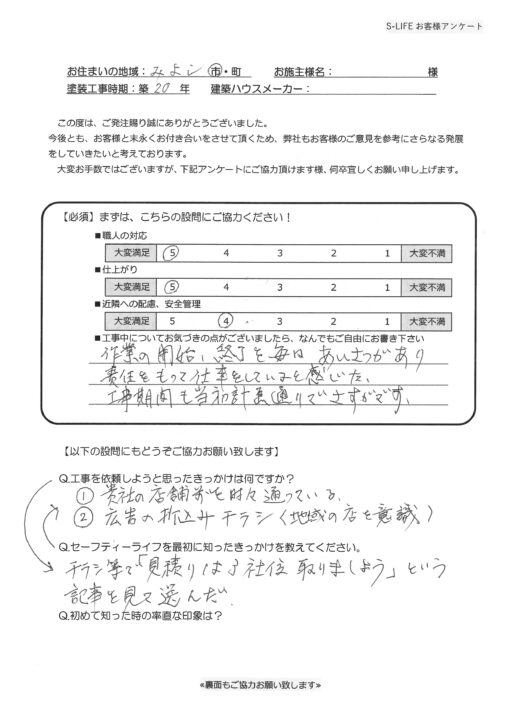 S-LIFE お客様アンケート
お住まいの地域：みよし 市・町 お施主様名： 様
塗装工事時期：築 20 年 建築ハウスメーカー：
この度は、ご発注賜り誠にありがとうございました。
今後とも、お客様と末永くお付き合いをさせて頂くため、弊社もお客様のご意見を参考にさらなる発展
をしていきたいと考えております。
大変お手数ではございますが、下記アンケートにご協力頂けます様、何卒宜しくお願い申し上げます。
【必須】まずは、こちらの設問にご協力ください！
■職人の対応
大変満足 5 4 3 2 1 大変不満
■仕上がり
大変満足 5 4 3 2 1 大変不満
■近隣への配慮、安全管理
大変満足 5 4 3 2 1 大変不満
■工事中についてお気づきの点がございましたら、なんでもご自由にお書き下さい
作業の開始、終了を毎日 あいさつがあり
責任をもって仕事をしていると感じた、
工事期間も当初計画通りでさすがです、
【以下の設問にもどうぞご協力お願い致します】
Q.工事を依頼しようと思ったきっかけは何ですか？
① 貴社の店舗前を時々通っている、
② 広告の折込みチラシ（地域の店を意識）
Q.セーフティーライフを最初に知ったきっかけを教えてください。
チラシ等で「見積りは3社位取りましょう」という
記事を見て選んだ.
Q.初めて知った時の率直な印象は？
≪裏面もご協力お願い致します≫